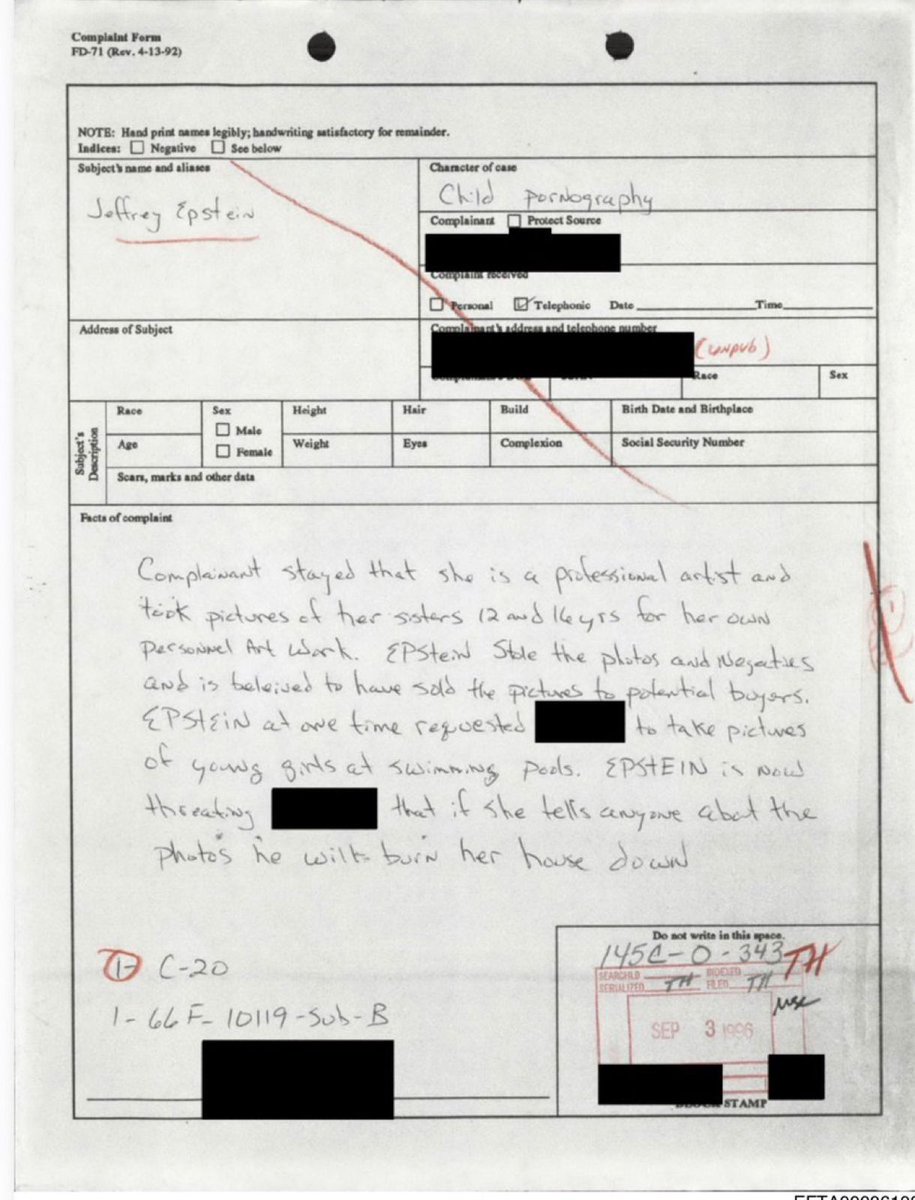 Complaint Form
FD-71 (Rev. 4-13-92)
NOTE: Hand print names legibly; handwriting satisfactory for remainder.
Indices: Negative See below
Subject's name and aliases
Jeffrey Epstein
Character of case
Child pornography
Complainant Protect Source
Complaint received
Personal Telephonic Date Time
Address of Subject
Complainant's address and telephone number
(unpub)
Race Sex
Subject's Description
Race Sex Height Hair Build Birth Date and Birthplace
Male
Age Female Weight Eyes Complexion Social Security Number
Scars, marks and other data
Facts of complaint
Complainant stayed that she is a professional artist and
took pictures of her sisters 12 and 16 yrs for her own
personnel Art Work. EPstein Stole the photos and Negatives
and is beleived to have sold the pictures to potential buyers.
EPSTEIN at one time requested to take pictures
of young girls at swimming pools. EPSTEIN is now
threating that if she tells anyone abot the
photos he will burn her house down
1- C-20
1- 66F-10119-Sub-B
Do not write in this space.
145C-0-343
TH
SEARCHED INDEXED
SERIALIZED TH FILED TH
SEP 3 1996
STAMP